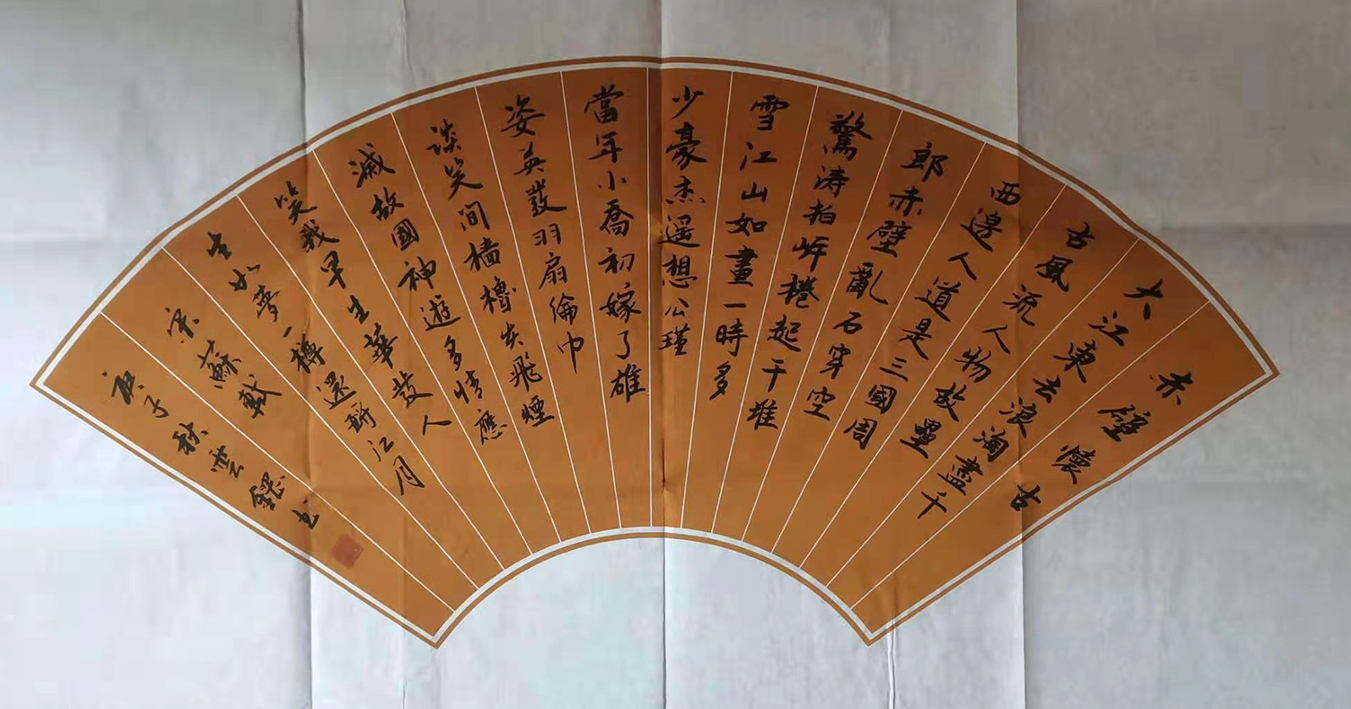 赤壁懷古
大江東去浪淘盡千
古風流人物故壘
西邊人道是三國周
郎赤壁亂石穿空
驚涛拍岸捲起千堆
雪江山如畫一時多
少豪杰遥想公瑾
當年小喬初嫁了雄
姿英發羽扇綸巾
谈笑间檣櫓灰飛煙
滅故國神遊多情應
笑我早生華发人
生如夢一樽還酹江月
宋蘇軾
庚子秋雲鍟书